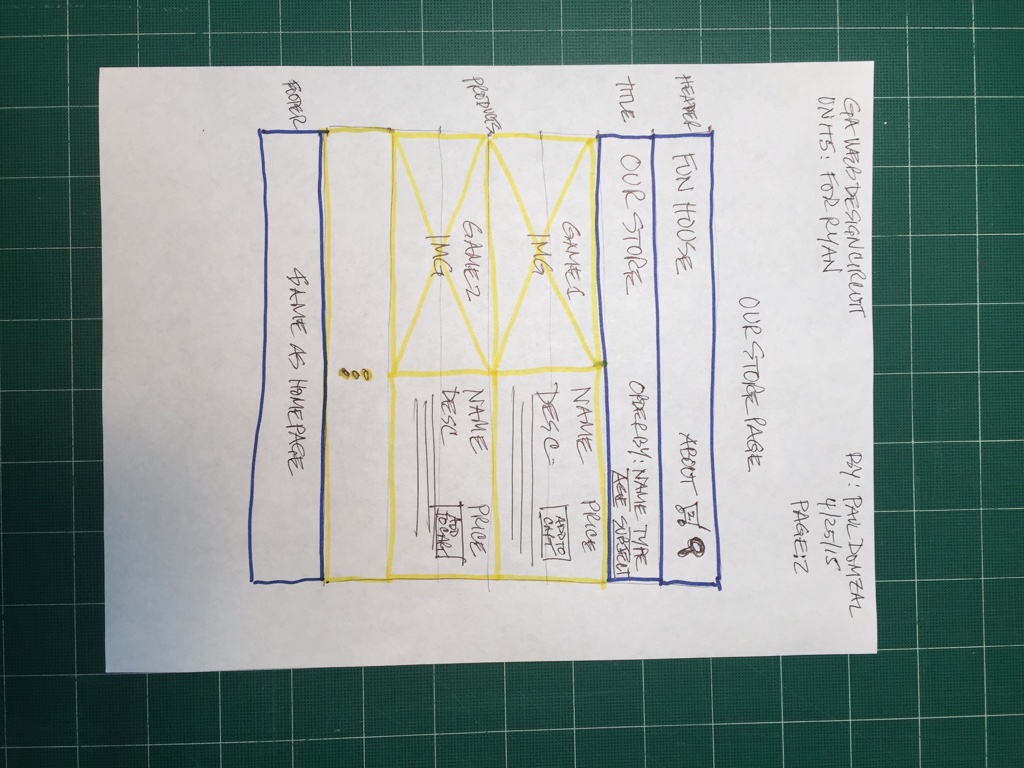 GA WEB DESIGN CIRCUIT
UNIT 5: FOR RYAN
BY: PAUL DOMZAL
4/25/15
PAGE: 2
OUR STORE PAGE
HEADER
FUN HOUSE
ABOUT
TITLE
OUR STORE
ORDER BY: NAME TYPE
AGE SUBJECT
PRODUCTS
GAME 1
IMG
NAME
PRICE
DESC-
ADD TO
CART
GAME 2
IMG
NAME
PRICE
DESC
ADD
TO CART
FOOTER
SAME AS HOMEPAGE